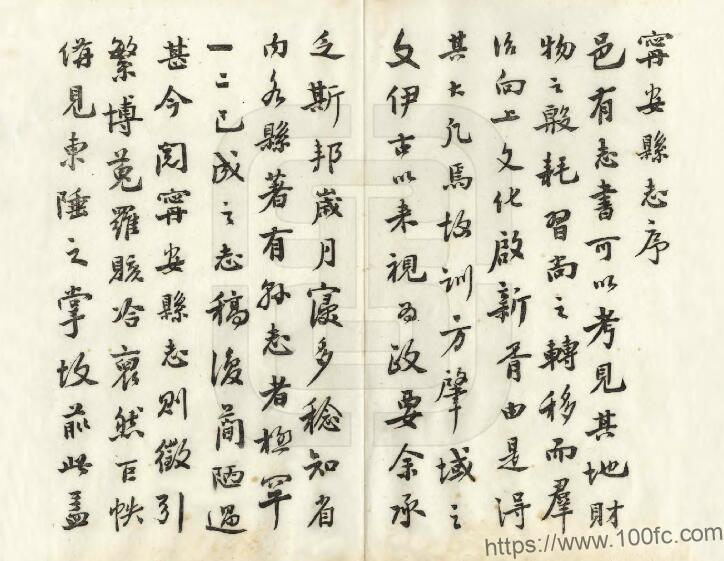 寗安縣志序
邑有志書可以考見其地財
物之殷耗習尚之轉移而羣
治向上文化啟新胥由是得
其大凡焉故訓方肇域之
文伊古以來視為政要余承
乏斯邦歲月寖多稔知省
内各縣著有縣志者極罕
一二已成之志稿復蕳陋過
甚今閱寗安縣志則徵引
繁博蒐羅賅洽裒然巨帙
備見東陲之掌故前此蓋
https://www.100fc.com